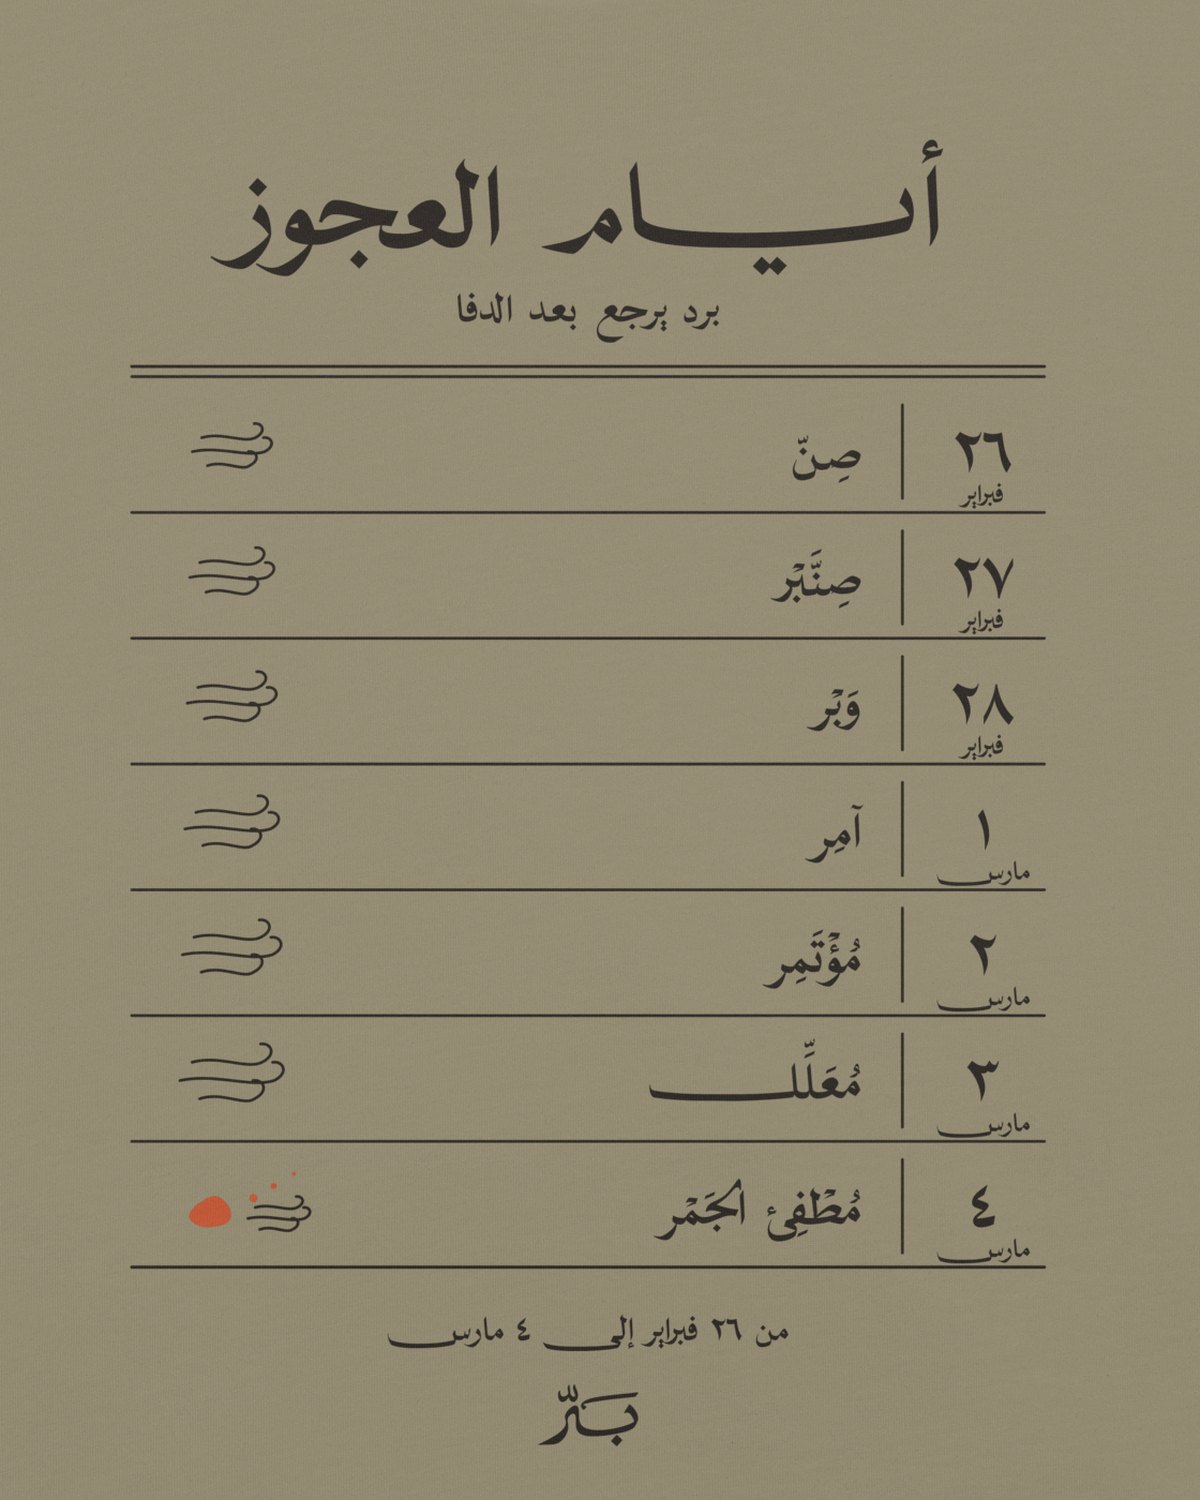 أيام العجوز
برد يرجع بعد الدفا
٢٦ صِنّ
فبراير
٢٧ صِنَّبْر
فبراير
٢٨ وَبْر
فبراير
١ آمِر
مارس
٢ مُؤْتَمِر
مارس
٣ مُعَلِّل
مارس
٤ مُطْفِئ الجَمْر
مارس
من ٢٦ فبراير إلى ٤ مارس
بَرّ